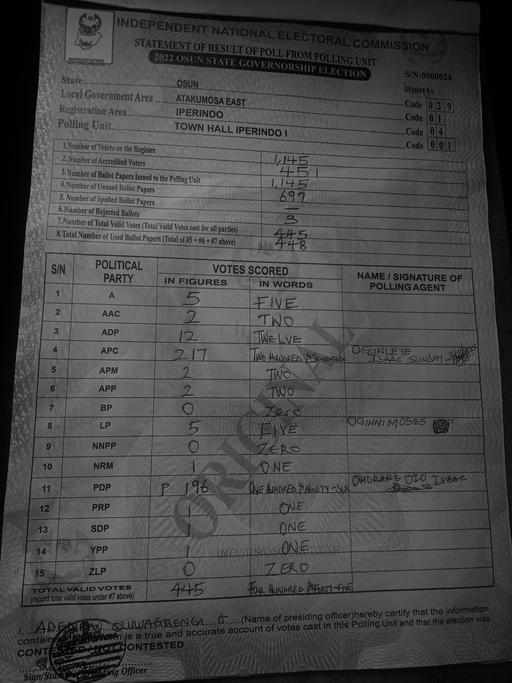 INDEPENDENT NATIONAL ELECTORAL COMMISSION
STATEMENT OF RESULT OF POLL FROM POLLING UNIT
2022 OSUN STATE GOVERNORSHIP ELECTION
S/N:0000024
State OSUN
Local Government Area ATAKUMOSA EAST Code 029
Registration Area IPERINDO Code 01
Polling Unit TOWN HALL IPERINDO I Code 04
Code 001
1.Number of Voters on the Register 1,145
2.Number of Accredited Voters 451
3.Number of Ballot Papers Issued to the Polling Unit 1,145
4.Number of Unused Ballot Papers 697
5.Number of Spoiled Ballot Papers –
6.Number of Rejected Ballots 3
7.Number of Total Valid Votes (Total Valid Votes cast for all parties) 445
8.Total Number of Used Ballot Papers (Total of #5 + #6 + #7 above) 448
S/N POLITICAL PARTY VOTES SCORED NAME / SIGNATURE OF POLLING AGENT
IN FIGURES IN WORDS
1 A 5 FIVE
2 AAC 2 TWO
3 ADP 12 TWELVE
4 APC 217 TWO HUNDRED & SEVENTEEN OGUNLEYE ISAAC SUNDAY
5 APM 2 TWO
6 APP 2 TWO
7 BP 0 Zero
8 LP 5 FIVE OGINNI MOSES
9 NNPP 0 ZERO
10 NRM 1 ONE
11 PDP 196 ONE HUNDRED & NINETY-SIX
12 PRP 1 ONE
13 SDP 1 ONE
14 YPP 1 ONE
15 ZLP 0 ZERO
TOTAL VALID VOTES 445 FOUR HUNDRED & FORTY-FIVE
(record total valid votes under #7 above)
ORIGINAL
(Name of presiding officer)hereby certify that the information
contained in this form is a true and accurate account of votes cast in this Polling Unit and that the election was
CONTESTED / NOT CONTESTED
Sign/Stamp of Presiding Officer